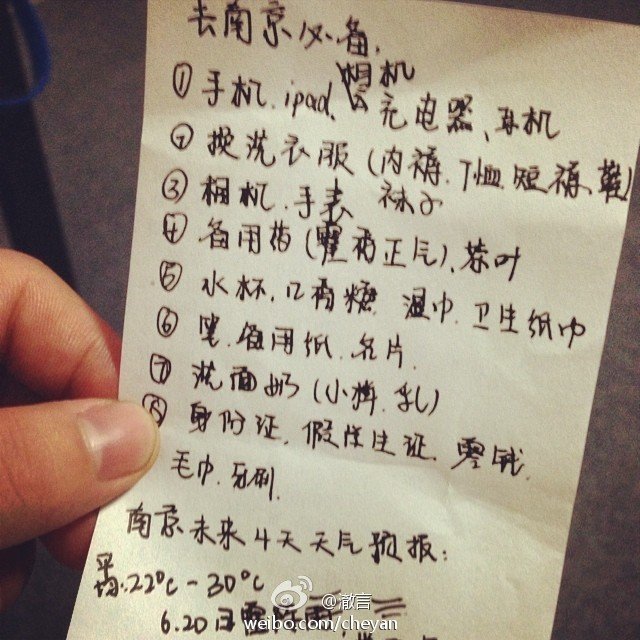 去南京必备:
①手机、ipad、相机、充电器、耳机
②换洗衣服(内裤、T恤、短裤、鞋)
袜子
③相机、手表
④备用药(藿香正气)、茶叶
⑤水杯、口香糖、湿巾、卫生纸巾
⑥笔、备用纸、名片.
⑦洗面奶(小样、乳)
⑧身份证、假学生证、零钱.
毛巾、牙刷.
南京未来4天天气预报:
平均:22℃-30℃
6.20日雷阵雨
@澈言
weibo.com/cheyan